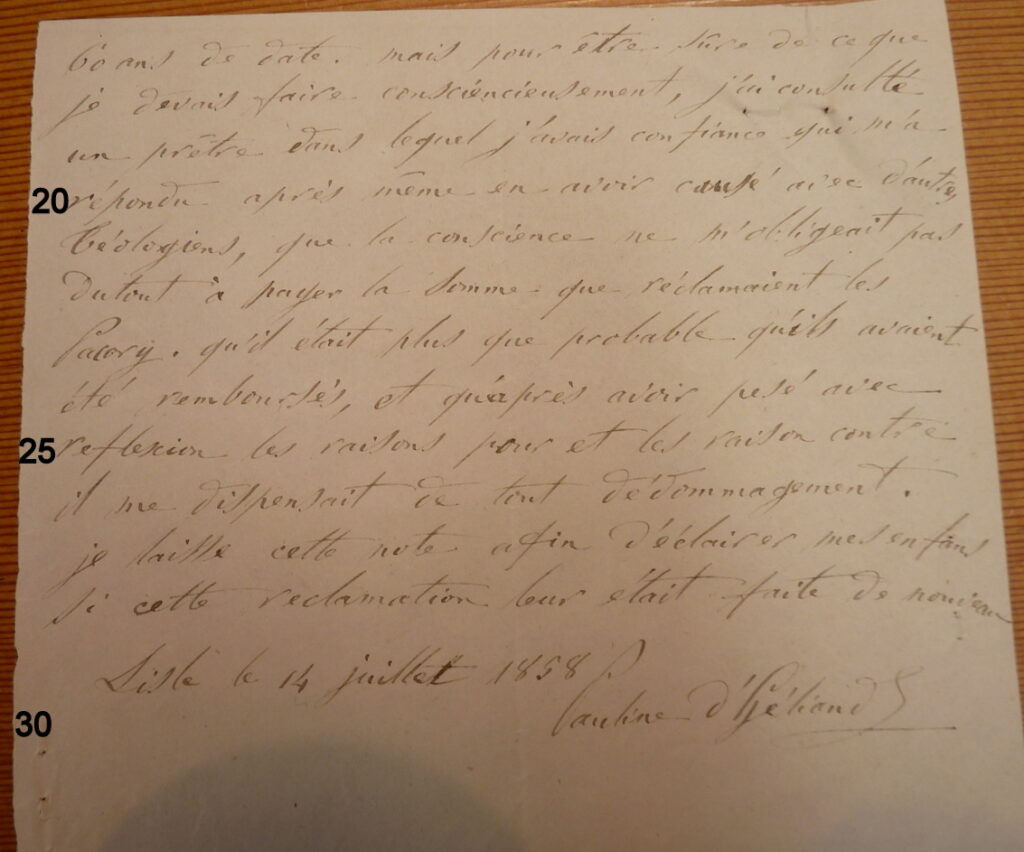 60 ans de date. mais pour être sûre de ce que
je devais faire consciencieusement, j'ai consulté
un prêtre dans lequel j'avais confiance qui m'a
20 répondu après même en avoir causé avec d'autres
téologiens, que la conscience ne m'obligeait pas
du tout à payer la somme que réclamaient les
Pacory. qu'il était plus que probable qu'ils avaient
été remboursés, et qu'après avoir pesé avec
25 reflexion les raisons pour et les raison contre
il me dispensait de tout dédommagement.
je laisse cette note afin d'éclairer mes enfans
si cette reclamation leur était faite de nouveau
Lisle le 14 juillet 1858
30 Pauline